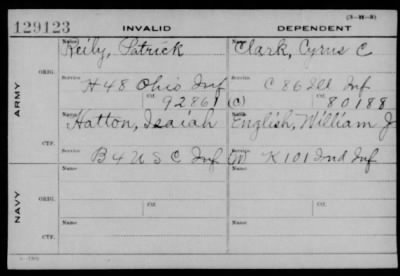 (3—1866)
129123 INVALID DEPENDENT
Name Name
Reily, Patrick Clark, Cyrus C
ORIG.
Service Service
H 48 Ohio Inf C 86 Ill Inf
Ctf. Ctf.
92861 (C) 80188
ARMY
Name Name
Hatton, Isaiah English, William J
CTF.
Service Service
B 4 U S C Inf (W) K 101 Ind Inf
Name Name
ORIG.
Service Ctf. Service Ctf.
NAVY
Name Name
CTF.
Service Service